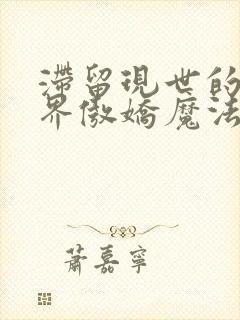 滯留現世的
界傲嬌魔法
蕭嘉寧